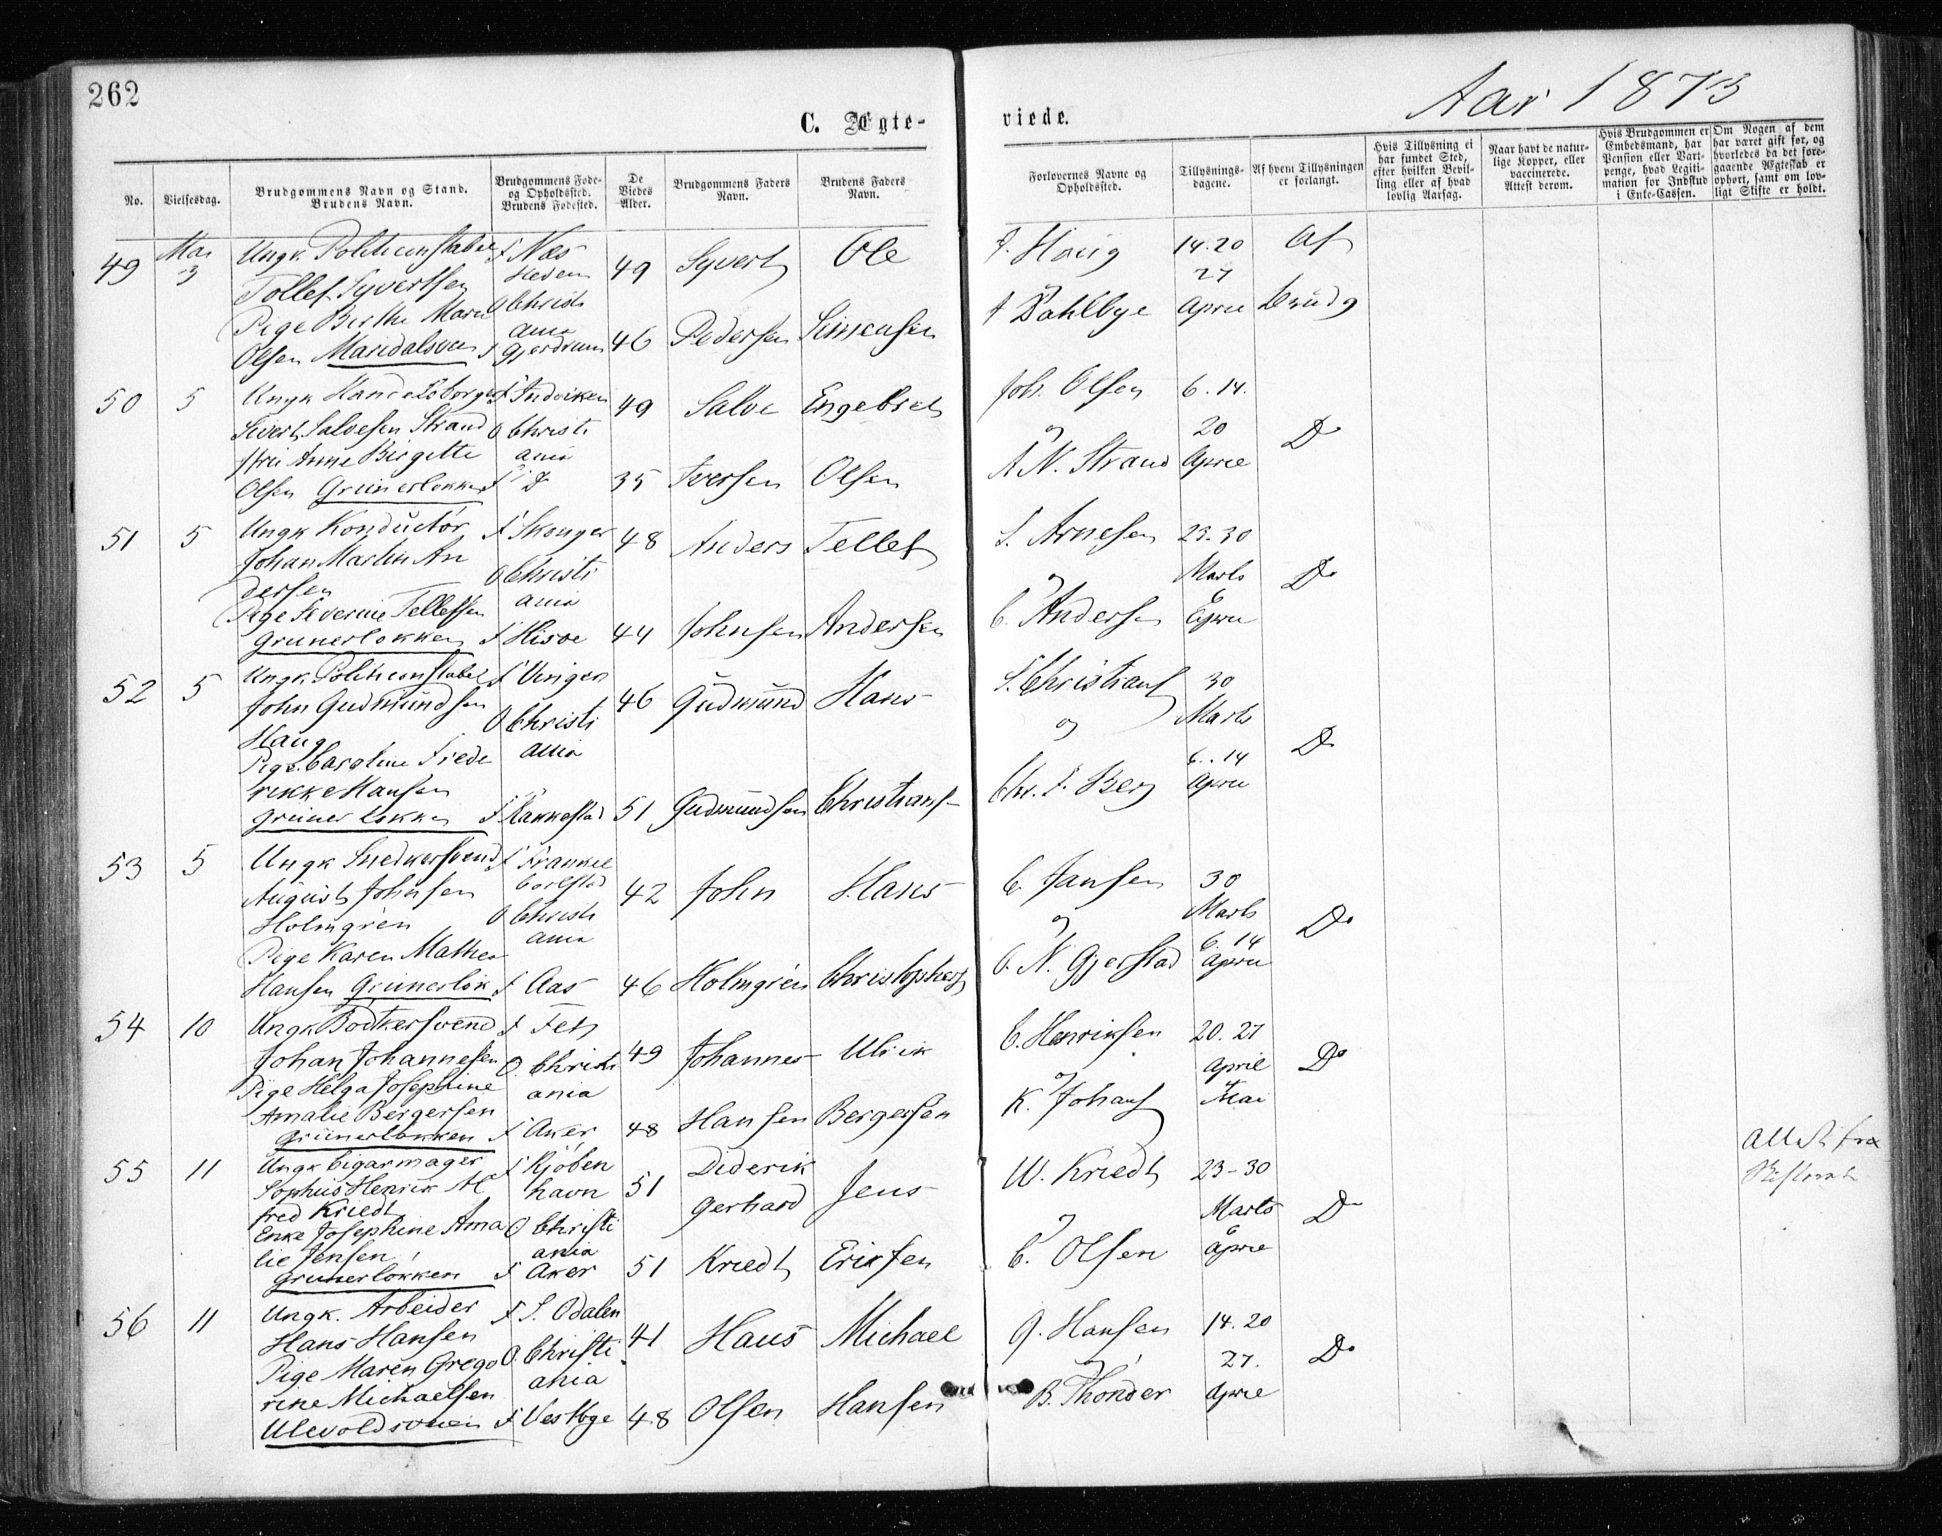 262
C. Ægte-
viede.
Aar 1873
No.
Vielsesdag.
Brudgommens Navn og Stand.
Brudens Navn.
Brudgommens Føde-
og Opholdssted.
Brudens Fødested.
De
Viedes
Alder.
Brudgommens Faders
Navn.
Brudens Faders
Navn.
Forlovernes Navne og
Opholdssted.
Tillysnings-
dagene.
Af hvem Tillysningen
er forlangt.
Hvis Tillysning ei
har fundet Sted,
efter hvilken Bevil-
ling eller af hvad
lovlig Aarsag.
Naar havt de natur-
lige Kopper, eller
vaccinerede.
Attest derom.
Hvis Brudgommen er
Embedsmand, har
Pension eller Vart-
penge, hvad Legiti-
mation for Indskud
i Enke-Cassen.
Om Nogen af dem
har været gift før, og
hvorledes da det fore-
gaaende Ægteskab er
ophørt, samt om lov-
ligt Skifte er holdt.
49 Mai 3
Ungk. Politiconstabel
Tollef Syvertsen
Pige Berthe Marie
Olsen Maridalsveien
f Næs
Hedem
O Christi
ania
f Gjerdrum
49
46
Syvert
Pedersen
Ole
Simensen
Haug
og
Dahlbye
14. 20
27
April
Af
Brudg
50 5
Ungk
Sivert Salvesen Strand
Anne Birgitte
Olsen Grünerløkken
f Indviken
O Christi
ania
f D
49
35
Salve
Iversen
Engebret
Olsen
Joh. Olsen
og
A N. Strand
6. 14.
20
April
Do
51 5
Ungk Konductør
Johan Martin An
dersen
Pige Severine Tellefsen
Grünerløkken
f Skonger
O Christi
ania
f Hisøe
48
44
Anders
Johnsen
Tellef
Andersen
S. Arnesen
og
C. Andersen
23-30
Marts
6
April
Do
52 5
Ungk. Politiconstabel
John Gudmundsen
Haug
Pige Caroline Frede
rikke Hansen
Grünerløkken
f Vinger
O Christi
ania
f Rakkestad
46
51
Gudmund
Gudmundsen
Hans
Christians
S. Christians
og
Chr. F. Berg
30
Marts
6. 14
April
Do
53 5
Ungk Snedkersvend
August Johnsen
Holmgren
Pige Karen Mathea
Hansen Grünerløk
f
Carlstad
O Christi
ania
f Aas
42
46
John
Holmgrén
Hans
Christophers
C. Jansen
og
O. N. Gjerstad
30
Marts
6. 14
April
Do
54 10
Ungk Bødkersvend
Johan Johannesen
Pige Helga Josephine
Amalie Bergersen
Grünerløkken
f Fet
O. Christi
ania
f Aker
49
48
Johannes
Hansen
Ulrik
Bergersen
C. Henriksen
og
K. Johans
20. 27
April
Mai
Do
55 11
Ungk Cigarmager
Sophus Henrik Al
fred Kriedt
Enke Josephine Ama
lie Jensen
Grünerløkken
f Kjøben
havn
O Christi
ania
f Aker
51
51
Diderik
Gerhard
Kriedt
Jens
Eriksen
W. Kriedt
og
C. Olsen
23-30
Marts
6
April
Do
Attest fra
56 11
Ungk. Arbeider
Hans Hansen
Pige Maren Grego
rine Michaelsen
Ulevoldsveien
f S. Odalen
O. Christi
ania
f Vestbye
41
48
Hans
Olsen
Michael
Hansen
G. Hansen
og
B. Thönder
14. 20
27.
April
Do